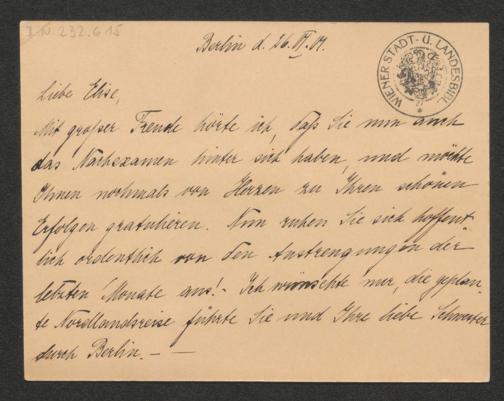 I.N. 232.615
Berlin d. 26. VI. 01.
WIENER STADT- U. LANDESBIBL.
Liebe Elise,
Mit großer Freude hörte ich, daß Sie nun auch
das Nachexamen hinter sich haben, und möchte
Ihnen nochmals von Herzen zu Ihren schönen
Erfolgen gratulieren. Nun ruhen Sie sich hoffent
lich ordentlich von den Anstrengungen der
letzten Monate aus! - Ich wünschte nur, die geplan
te Nordlandsreise führte Sie und Ihre liebe Schwester
durch Berlin. — —